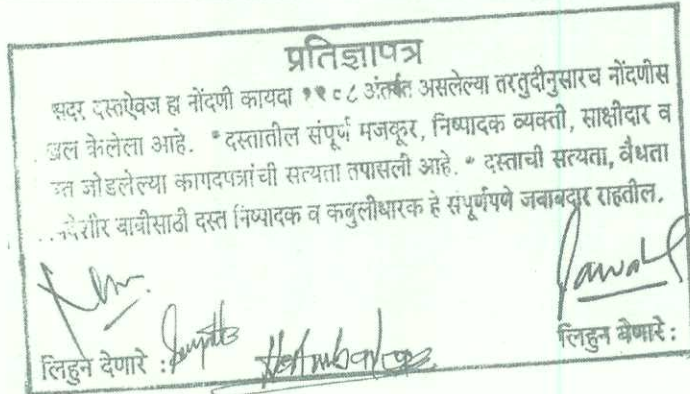 प्रतिज्ञापत्र
सदर दस्तऐवज हा नोंदणी कायदा १९०८ अंतर्गत असलेल्या तरतुदीनुसारच नोंदणीस
केलेला आहे. * दस्तातील संपूर्ण मजकूर, निष्पादक व्यक्ती, साक्षीदार व
जोडलेल्या कागदपत्रांची सत्यता तपासली आहे. * दस्ताची सत्यता, वैधता
बाबीसाठी दस्त निष्पादक व कबुलीधारक हे संपूर्णपणे जबाबदार राहतील.
लिहुन देणारे : लिहुन घेणारे :